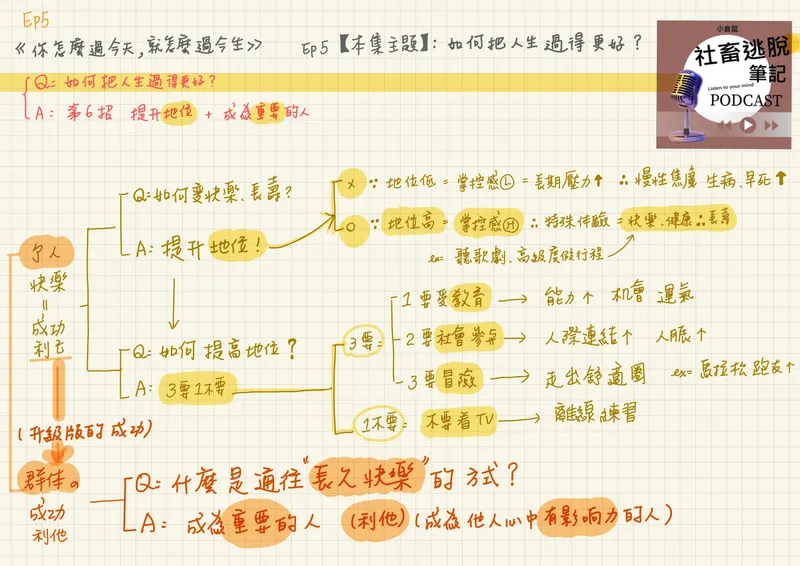 Ep5
《你怎麼過今天,就怎麼過今生》 Ep5【本集主題】: 如何把人生過得更好?
小倉鼠
社畜逃脫
筆記
Listen to your mind
PODCAST
Q: 如何把人生過得更好?
A: 第6招 提升地位 + 成為重要的人
Q: 如何變快樂、長壽?
A: 提升地位!
× ∵ 地位低 = 掌控感Ⓛ = 長期壓力↑ ∴ 慢性焦慮 生病、早死↑
○ ∵ 地位高 = 掌控感Ⓗ ∴ 特殊体驗 = 快樂、健康 ∴ 長壽
ex= 聽歌劇、高級度假行程
個人
快樂
=
成功
利己
Q: 如何提高地位?
A: 3要1不要
3要=
1 要受教育 → 能力↑ 機會 運氣
2 要社會參与 → 人際連結↑ 人脈↑
3 要冒險 → 走出舒適圈 ex= 馬拉松跑友↑
1不要= 不要看TV → 離線練習
(升級版的成功)
群体
成功
利他
Q: 什麼是通往"長久快樂"的方式?
A: 成為重要的人 (利他) (成為他人心中有影响力的人)